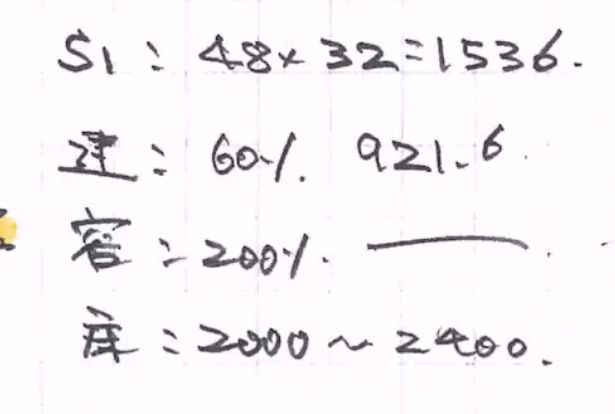 S1: 48×32=1536.
建: 60%. 921.6.
容: 200%. ———.
床: 2000～2400.